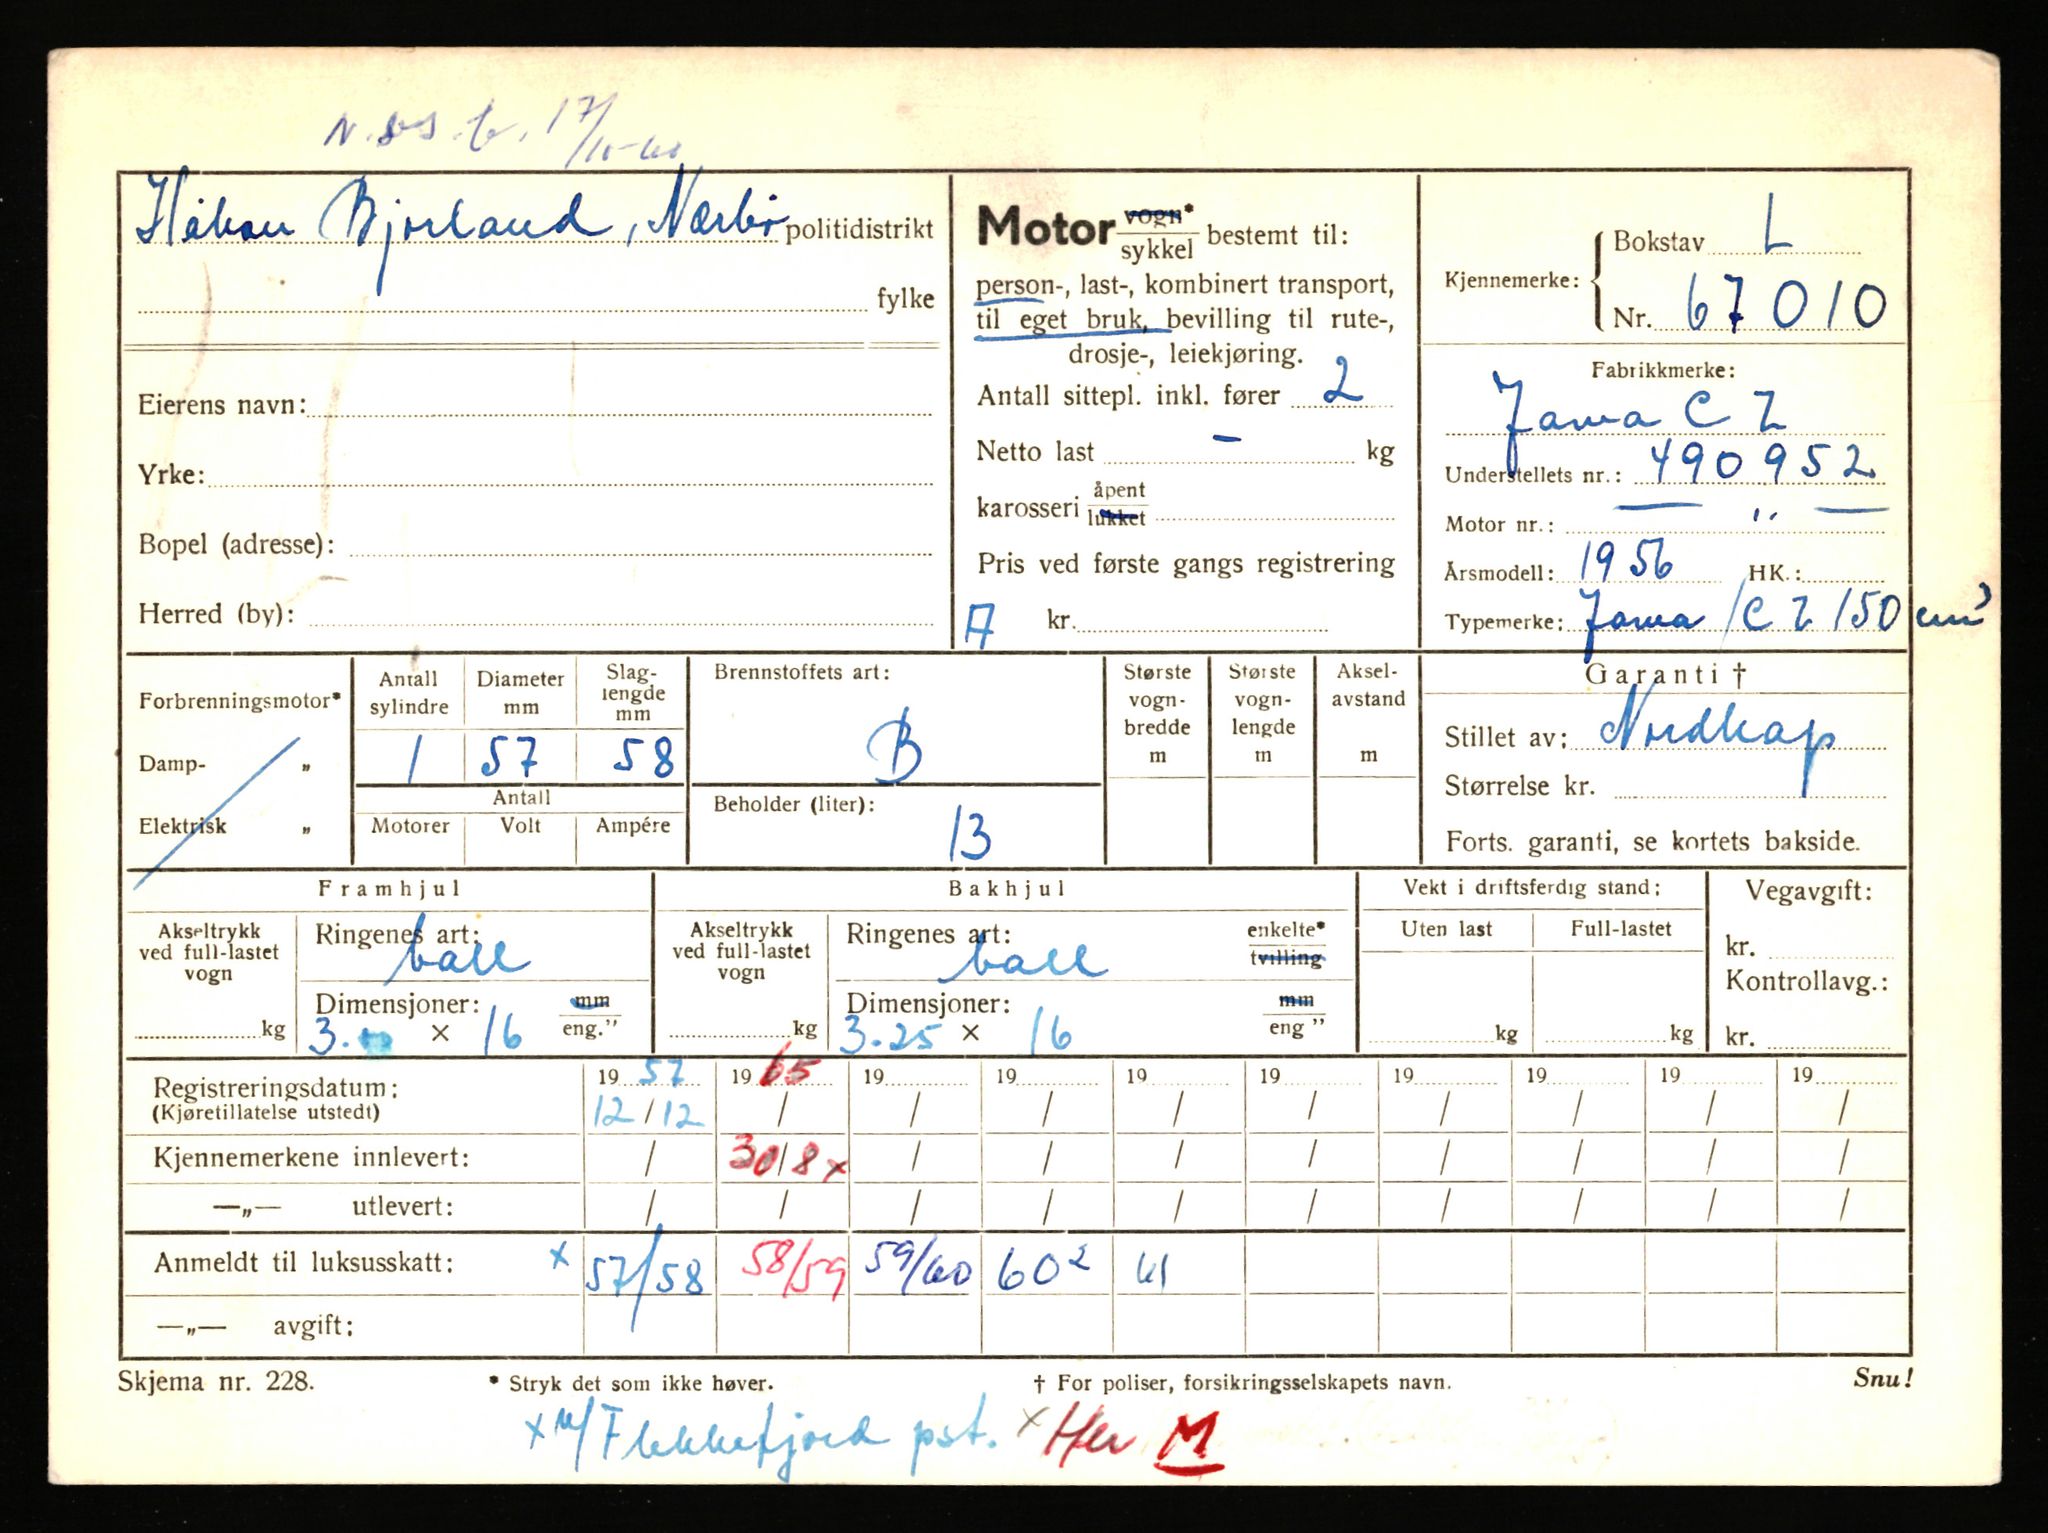 17/10-60
Håkon Bjorland, Nærbø politidistrikt
fylke
Eierens navn:
Yrke:
Bopel (adresse):
Herred (by):
Motor vogn* / sykkel bestemt til:
person-, last-, kombinert transport,
til eget bruk, bevilling til rute-,
drosje-, leiekjøring.
Antall sittepl. inkl. fører 2
Netto last - kg
karosseri åpent / lukket
Pris ved første gangs registrering
A kr.
Kjennemerke: Bokstav L
Nr. 67010
Fabrikkmerke:
Jawa C Z
Understellets nr.: 490952
Motor nr.: — „ —
Årsmodell: 1956 HK.:
Typemerke: Jawa /C Z 150 cm³
Forbrenningsmotor*
Damp- „
Elektrisk „
Antall sylindre
Diameter mm
Slaglengde mm
1 57 58
Antall
Motorer Volt Ampére
Brennstoffets art:
B
Beholder (liter):
13
Største vogn-bredde m
Største vogn-lengde m
Aksel-avstand m
Garanti †
Stillet av: Nordkap
Størrelse kr.
Forts. garanti, se kortets bakside.
Framhjul
Akseltrykk ved full-lastet vogn
kg
Ringenes art:
ball
Dimensjoner: mm / eng."
3. × 16
Bakhjul
Akseltrykk ved full-lastet vogn
kg
Ringenes art: enkelte* / tvilling
ball
Dimensjoner: mm / eng "
3.25 × 16
Vekt i driftsferdig stand:
Uten last Full-lastet
kg kg
Vegavgift:
kr.
Kontrollavg.:
kr.
Registreringsdatum: 1957 1965 19 19 19 19 19 19 19 19
(Kjøretillatelse utstedt) 12/12 / / / / / / / / /
Kjennemerkene innlevert: / 30/8 x / / / / / / / /
—„— utlevert: / / / / / / / / / /
Anmeldt til luksusskatt: x 57/58 58/59 59/60 60² 61
—„— avgift:
Skjema nr. 228. * Stryk det som ikke høver. † For poliser, forsikringsselskapets navn. Snu!
x Flekkefjord pst. x Her M